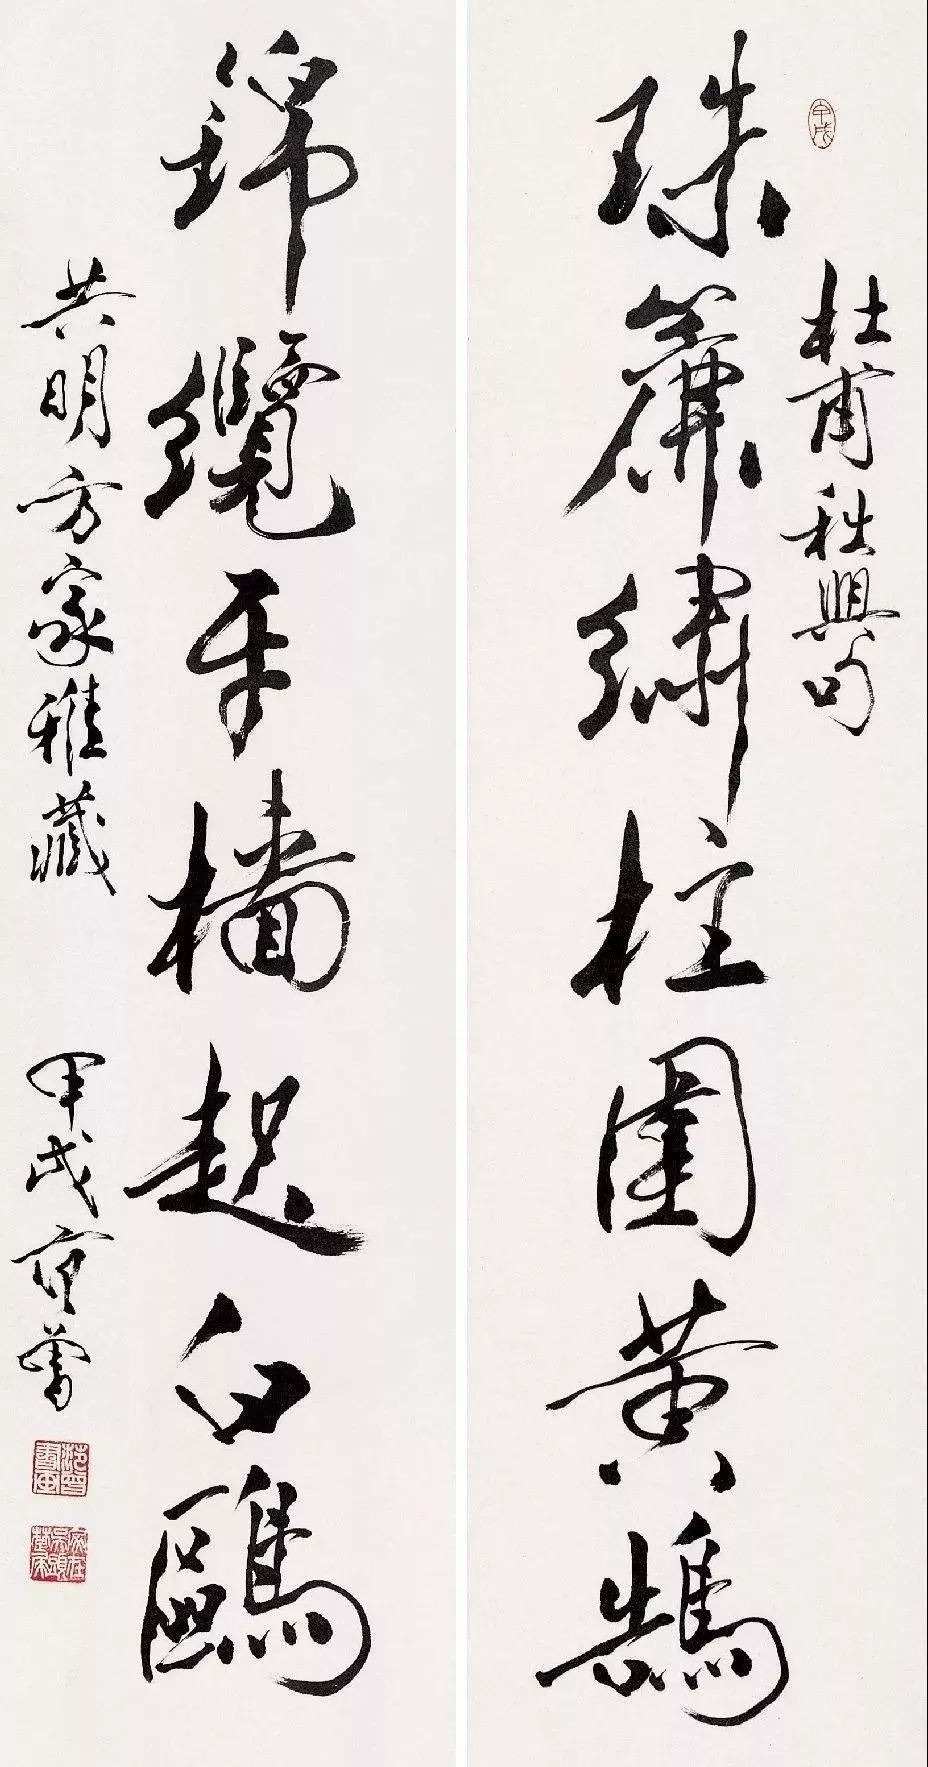 甲戌
杜甫秋興句
珠簾繡柱圍黃鵠
錦纜牙檣起白鷗
共明方家雅藏
甲戌范曾